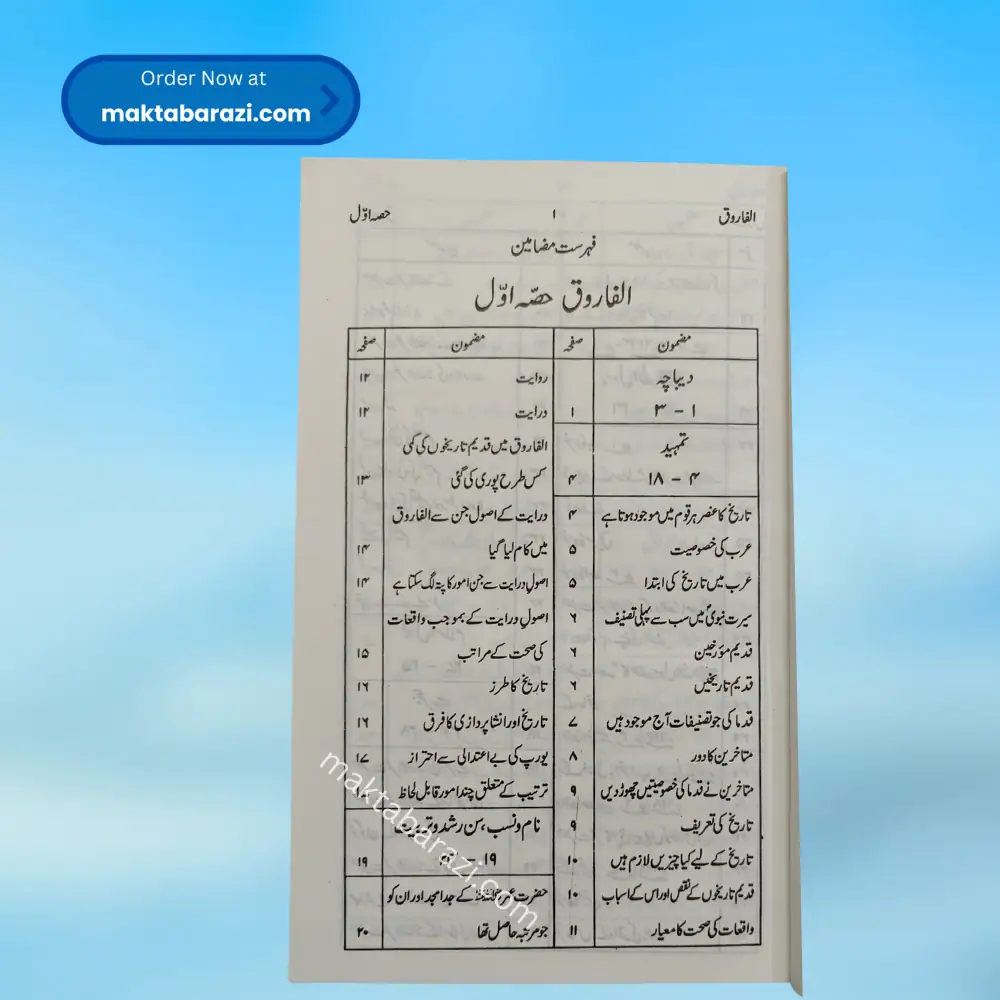 Order Now at
maktabarazi.com
الفاروق ۱ حصہ اوّل
فہرست مضامین
الفاروق حصّہ اوّل
مضمون صفحہ
دیباچہ
۱ – ۳ ۱
تمہید
۴ – ۱۸ ۴
تاریخ کا عنصر ہر قوم میں موجود ہوتا ہے ۴
عرب کی خصوصیت ۵
عرب میں تاریخ کی ابتدا ۵
سیرت نبویؐ میں سب سے پہلی تصنیف ۶
قدیم مؤرخین ۶
قدیم تاریخیں ۶
قدما کی جو تصنیفات آج موجود ہیں ۷
متاخرین کا دور ۸
متاخرین نے قدما کی خصوصیتیں چھوڑ دیں ۹
تاریخ کی تعریف ۹
تاریخ کے لیے کیا چیزیں لازم ہیں ۱۰
قدیم تاریخوں کے نقص اور اس کے اسباب ۱۰
واقعات کی صحت کا معیار ۱۱
مضمون صفحہ
روایت ۱۲
درایت ۱۲
الفاروق میں قدیم تاریخوں کی کمی
کس طرح پوری کی گئی ۱۳
درایت کے اصول جن سے الفاروق
میں کام لیا گیا ۱۴
اصولِ درایت سے جن امور کا پتہ لگ سکتا ہے ۱۴
اصولِ درایت کے بموجب واقعات
کی صحت کے مراتب ۱۵
تاریخ کا طرز ۱۶
تاریخ اور انشا پردازی کا فرق ۱۶
یورپ کی بے اعتدالی سے احتراز ۱۷
ترتیب کے متعلق چند امور قابل لحاظ
نام و نسب، سن رشد و تربیت
۱۹ – ۱۹
حضرت عمر کے جد امجد اور ان کو
جو مرتبہ حاصل تھا ۲۰
maktabarazi.com